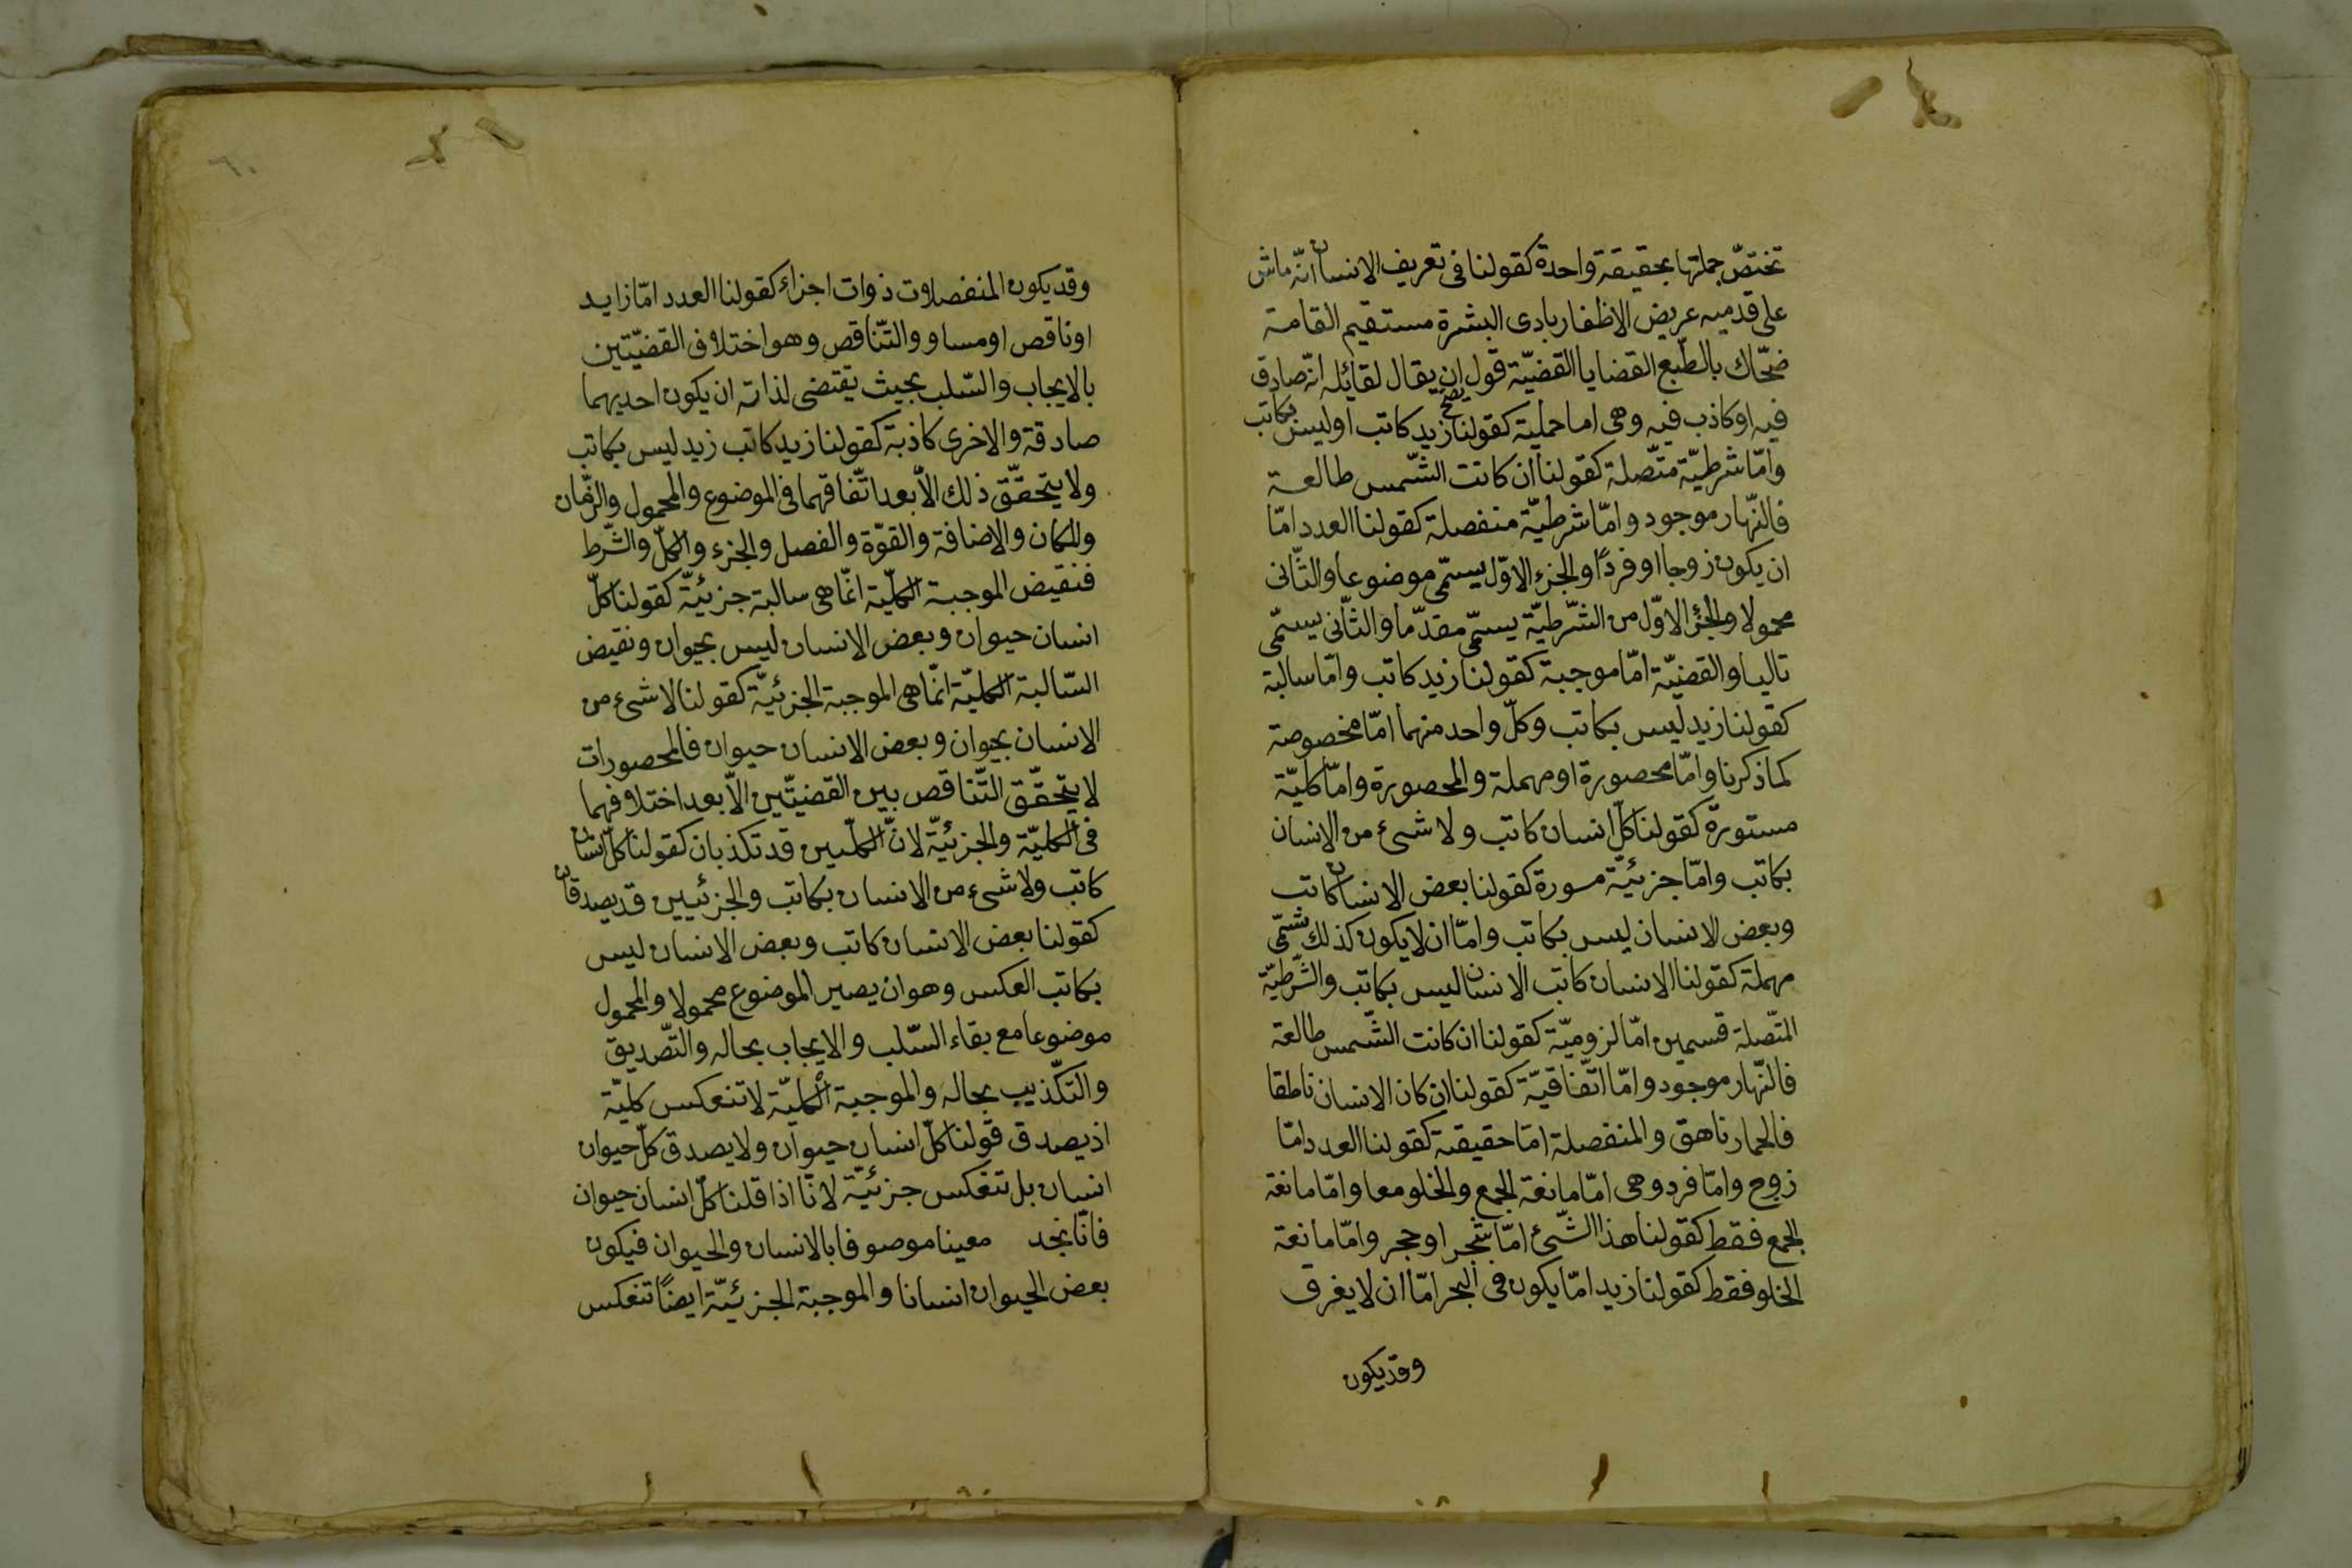 تختصّ جملتها بحقيقة واحدة كقولنا فى تعريف الانسان انّه ماش
على قدميه عريض الاظفار بادى البشرة مستقيم القامة
ضحّاك بالطّبع القضايا القضيّة قول يصح ان يقال لقائله انّه صادق
فيه او كاذب فيه وهى اما حملية كقولنا زيد كاتب او ليس بكاتب
وامّا شرطيّة متّصلة كقولنا ان كانت الشّمس طالعة
فالنّهار موجود وامّا شرطيّة منفصلة كقولنا العدد امّا
ان يكون زوجا او فردًا والجزء الاوّل يسمّى موضوعا والثّانى
محمولا والجزء الاوّل من الشّرطيّة يسمّى مقدّما والثّانى يسمّى
تاليا والقضيّة امّا موجبة كقولنا زيد كاتب وامّا سالبة
كقولنا زيد ليس بكاتب وكلّ واحد منهما امّا مخصوصة
كما ذكرنا وامّا محصورة او مهملة والمحصورة وامّا كليّة
مستورة كقولنا كلّ انسان كاتب ولا شىء من الانسان
بكاتب وامّا جزئيّة مسورة كقولنا بعض الانسان كاتب
وبعض الانسان ليس بكاتب وامّا ان لا يكون كذلك تسمّى
مهملة كقولنا الانسان كاتب الانسان ليس بكاتب والشّرطيّة
المتّصلة قسمين امّا لزوميّة كقولنا ان كانت الشّمس طالعة
فالنّهار موجود وامّا اتّفاقيّة كقولنا ان كان الانسان ناطقا
فالحمار ناهق والمنفصلة امّا حقيقة كقولنا العدد امّا
زوج وامّا فرد وهى امّا مانعة الجمع والخلو معا وامّا مانعة
الجمع فقط كقولنا هذا الشّىء امّا شجر او حجر وامّا مانعة
الخلو فقط كقولنا زيد امّا يكون فى البحر امّا ان لا يغرق
وقد يكون
٦٠
وقد يكون المنفصلات ذوات اجزاء كقولنا العدد امّا زايد
او ناقص او مساو والتّناقص وهو اختلاف القضيّتين
بالايجاب والسّلب بحيث يقتضى لذاته ان يكون احديهما
صادقة والاخرى كاذبة كقولنا زيد كاتب زيد ليس بكاتب
ولا يتحقّق ذلك الّا بعد اتّفاقهما فى الموضوع والمحمول والزّمان
والمكان والاضافة والقوّة والفصل والجزء والكلّ والشّرط
فنقيض الموجبة الكلّية انّما هى سالبة جزئيّة كقولنا كلّ
انسان حيوان وبعض الانسان ليس بحيوان ونقيض
السّالبة الكليّة انّما هى الموجبة الجزئيّة كقولنا لا شىء من
الانسان بحيوان وبعض الانسان حيوان فالمحصورات
لا يتحقّق التّناقص بين القضيّتين الّا بعد اختلافهما
فى الكليّة والجزئيّة لانّ الكلّيين قد تكذبان كقولنا كلّ انسان
كاتب ولا شىء من الانسان بكاتب والجزئيين قد يصدقان
كقولنا بعض الانسان كاتب وبعض الانسان ليس
بكاتب العكس وهو ان يصير الموضوع محمولا والمحمول
موضوعا مع بقاء السّلب والايجاب بحاله والتّصديق
والتكّذيب بحاله والموجبة الكليّة لا تنعكس كليّة
اذ يصدق قولنا كلّ انسان حيوان ولا يصدق كلّ حيوان
انسان بل تنعكس جزئيّة لانّا اذا قلنا كلّ انسان حيوان
فانّا نجد معينا موصوفا بالانسان والحيوان فيكون
بعض الحيوان انسانا والموجبة الجزئيّة ايضًا تنعكس